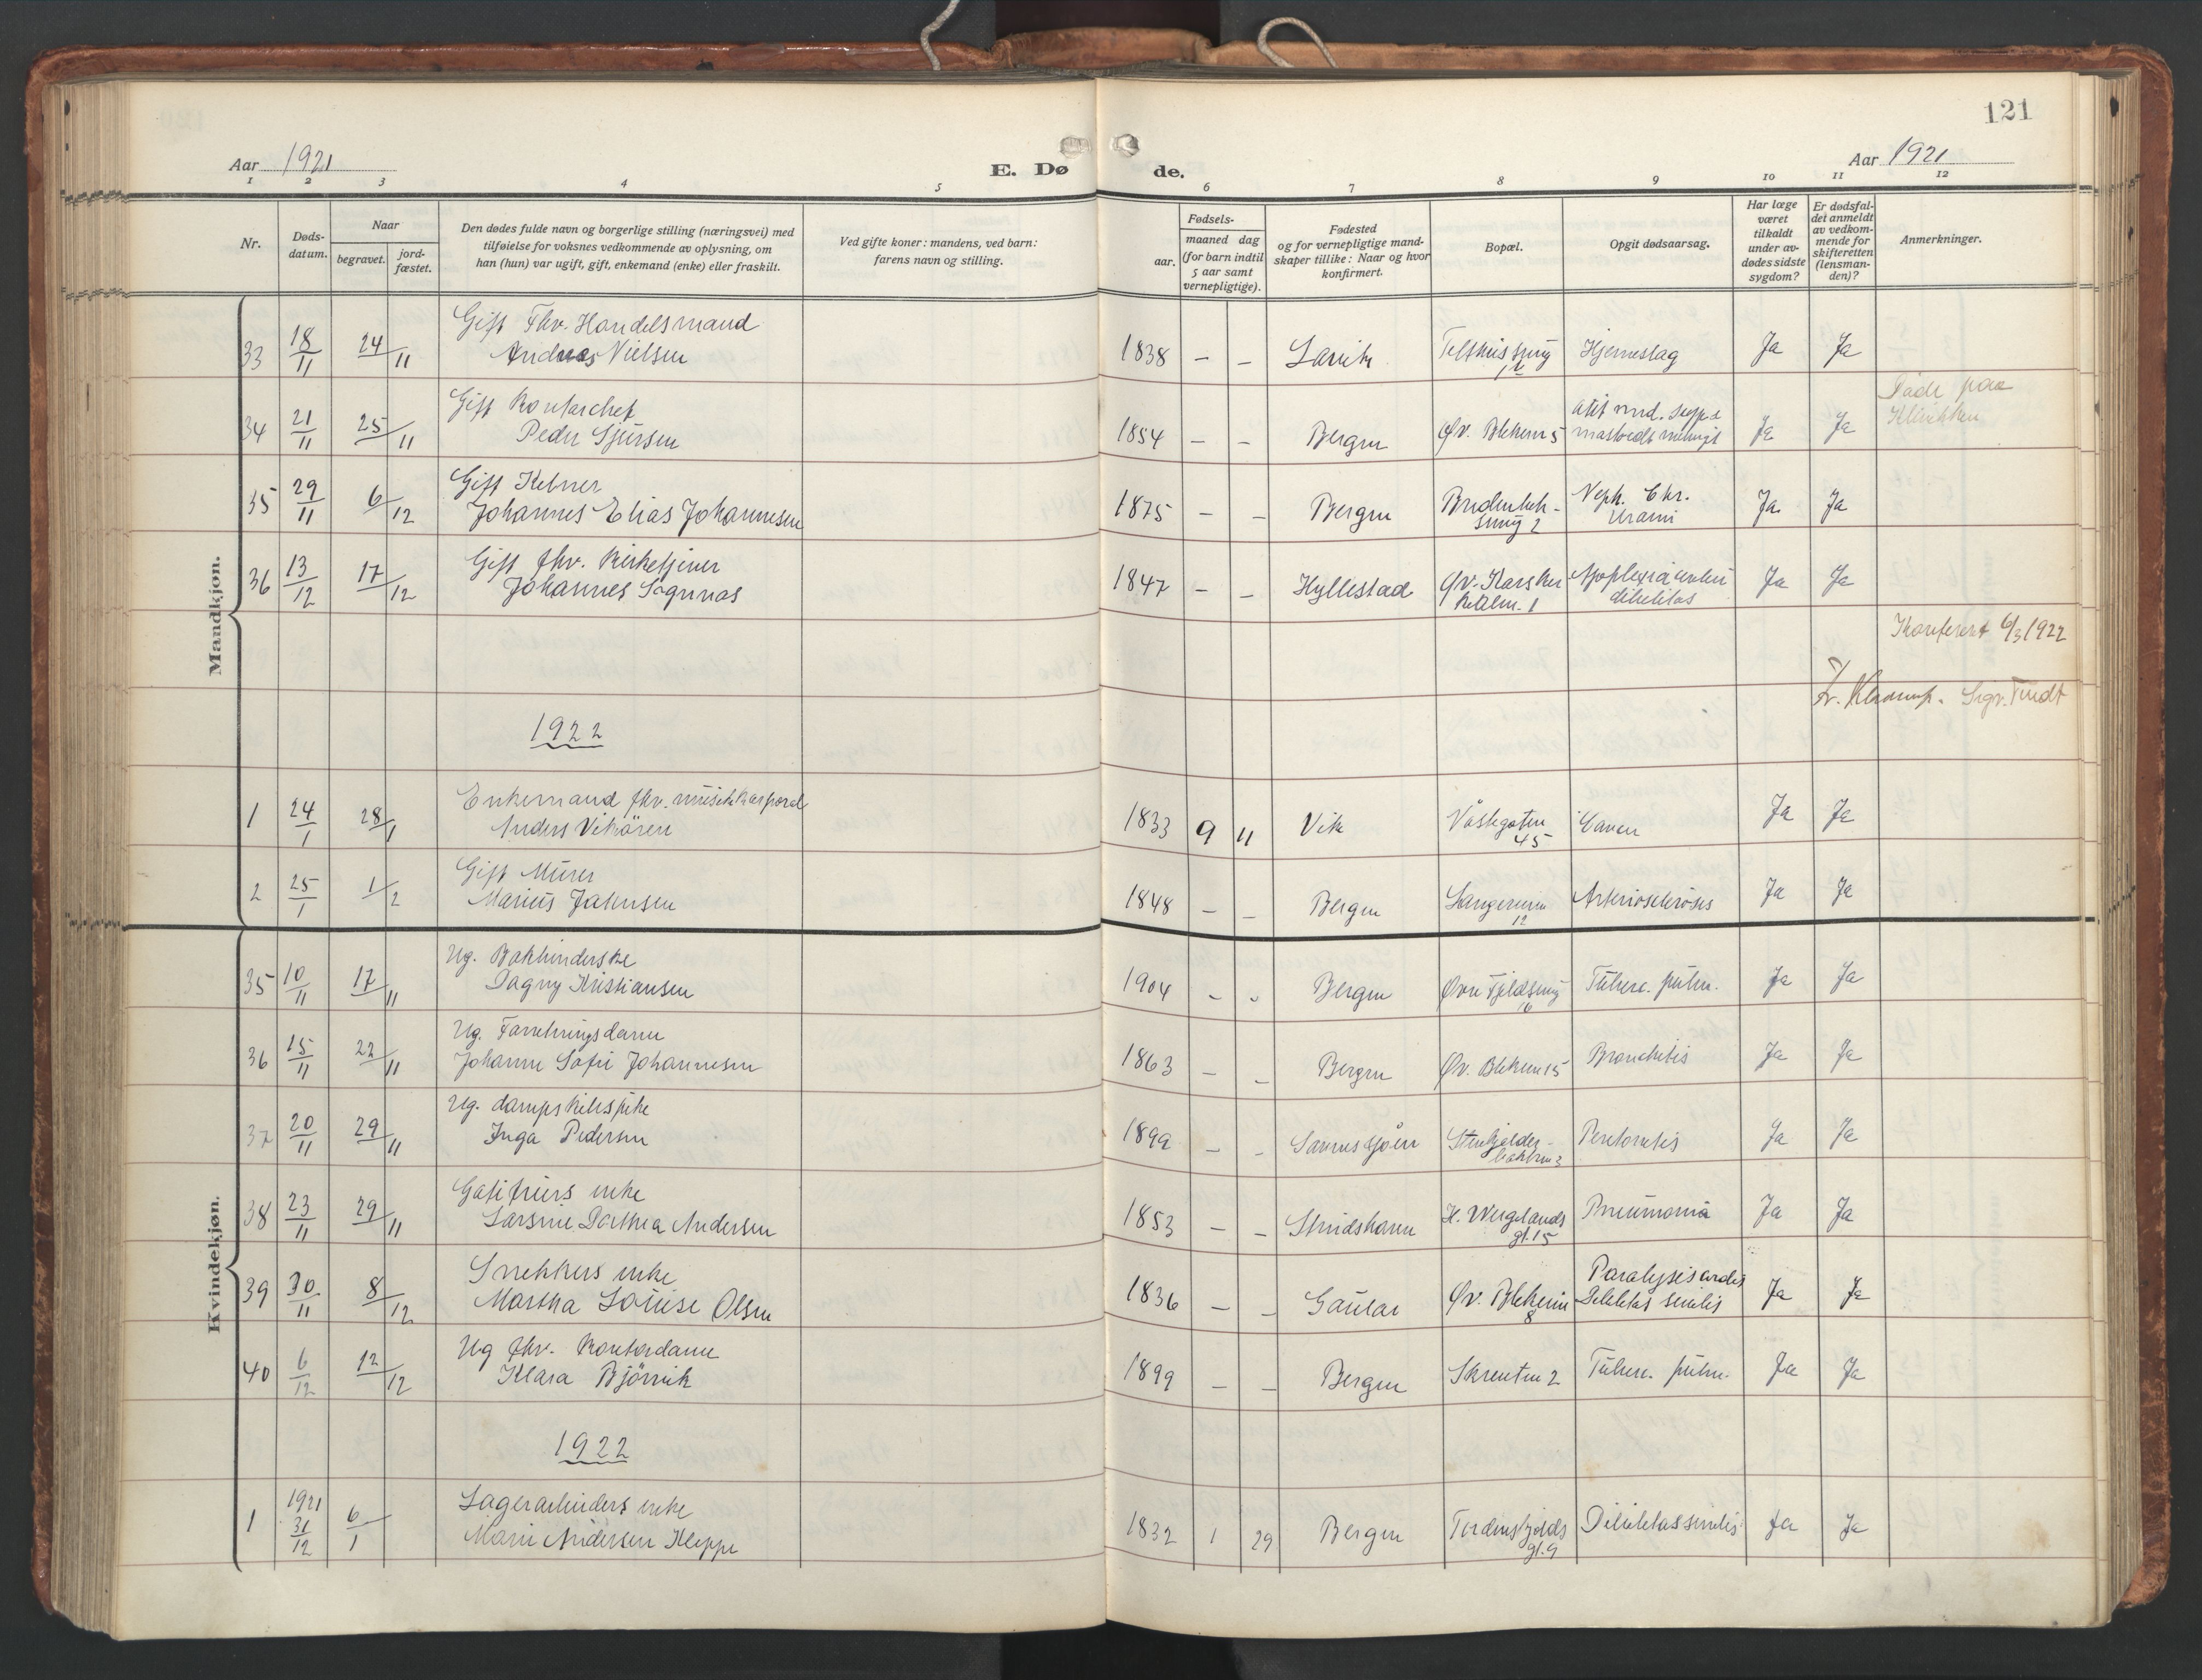 121
Aar 1921
E. Dø de.
Aar 1921
1 2 3 4 5 6 7 8 9 10 11 12
Nr.
Døds-
datum.
Naar
begravet.
jord-
fæstet.
Den dødes fulde navn og borgerlige stilling (næringsvei) med
tilføielse for voksnes vedkommende av oplysning, om
han (hun) var ugift, gift, enkemand (enke) eller fraskilt.
Ved gifte koner: mandens, ved barn:
farens navn og stilling.
Fødsels-
aar.
maaned dag
(for barn indtil
5 aar samt
vernepligtige).
Fødested
og for vernepligtige mand-
skaper tillike: Naar og hvor
konfirmert.
Bopæl.
Opgit dødsaarsag.
Har læge
været
tilkaldt
under av-
dødes sidste
sygdom?
Er dødsfal-
det anmeldt
av vedkom-
mende for
skifteretten
(lensman-
den)?
Anmerkninger.
Mandkjøn.
Gift Fhv. Handelsmand
33 18/11 24/11 Andreas Nielsen 1838 – – Larvik Hjerneslag Ja Ja
Gift Kontorchef
34 21/11 25/11 Peder Sjursen 1854 – – Bergen Øv. Blekevn 5 Ja Ja
Gift Kelner
35 29/11 6/12 Johannes Elias Johannesen 1875 – – Bergen Neph. Chr. Ja Ja
Gift fhv. Kirketjener
36 13/12 17/12 Johannes 1847 – – Hyllestad Ja Ja
Konferert 6/3 1922
1922
Enkemand fhv. musikkorporal
1 24/1 28/1 Anders Vikören 1833 9 11 Vik 45 Ja Ja
Gift Murer
2 25/1 1/2 Marius Jakobsen 1848 – – Bergen 12 Arteriosclerosis Ja Ja
Kvindekjøn.
Ug. Bokbinderske
35 10/11 17/11 Dagny Kristiansen 1904 – – Bergen Øvre Fjeldsmug Tuberc. pulm. Ja Ja
Ug. Forretningsdame
36 15/11 22/11 Johanne Sofie Johannesen 1863 – – Bergen Øv. Blekevn 15 Bronchitis Ja Ja
Ug. dampskibspike
37 20/11 29/11 Inga Pedersen 1899 – – Sannesjöen Ja Ja
enke
38 23/11 29/11 Larsine Dorthea Andersen 1853 – – H. Wergelands gt. 15 Pneumonia Ja Ja
Snekkers enke
39 30/11 8/12 Martha Louise Olsen 1836 – – Gaular Øv. Blekevn 8 Debilitas senilis Ja Ja
Ug fhv. Kontordame
40 6/12 12/12 Klara Björnvik 1899 – – Bergen Skrenten 2 Tuberc. pulm. Ja Ja
1922
Lagerarbeiders enke
1 1921 31/12 6/1 Marie Andersen Kleppe 1832 1 29 Bergen Tordenskjolds gt. 9 Debilitas senilis Ja Ja